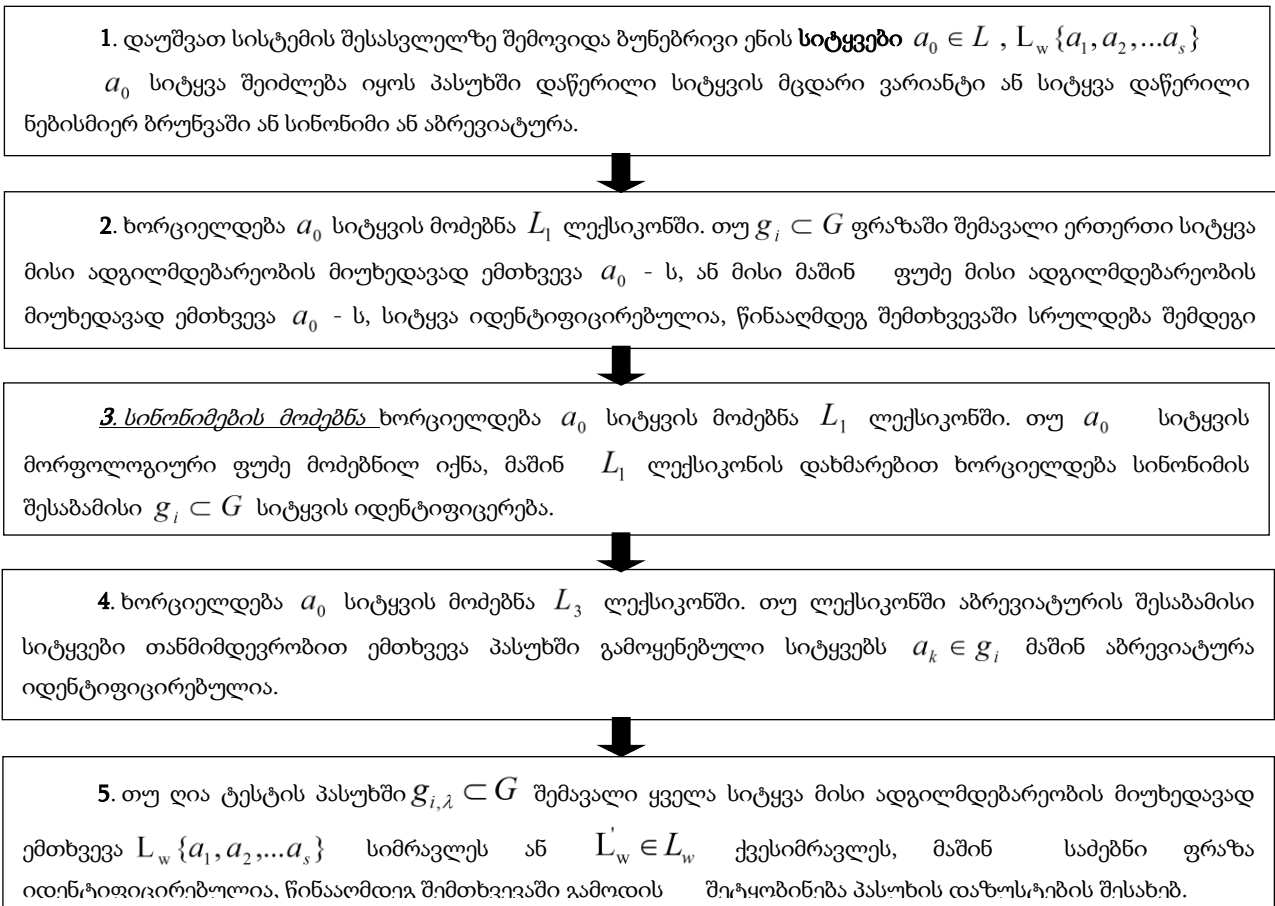 1. დაუშვათ სისტემის შესასვლელზე შემოვიდა ბუნებრივი ენის სიტყვები a₀ ∈ L , L_w {a₁, a₂,...a_s}
a₀ სიტყვა შეიძლება იყოს პასუხში დაწერილი სიტყვის მცდარი ვარიანტი ან სიტყვა დაწერილი
ნებისმიერ ბრუნვაში ან სინონიმი ან აბრევიატურა.
2. ხორციელდება a₀ სიტყვის მოძებნა L₁ ლექსიკონში. თუ g_i ⊂ G ფრაზაში შემავალი ერთერთი სიტყვა
მისი ადგილმდებარეობის მიუხედავად ემთხვევა a₀ - ს, ან მისი მაშინ ფუძე მისი ადგილმდებარეობის
მიუხედავად ემთხვევა a₀ - ს, სიტყვა იდენტიფიცირებულია, წინააღმდეგ შემთხვევაში სრულდება შემდეგი
3. სინონიმების მოძებნა ხორციელდება a₀ სიტყვის მოძებნა L₁ ლექსიკონში. თუ a₀ სიტყვის
მორფოლოგიური ფუძე მოძებნილ იქნა, მაშინ L₁ ლექსიკონის დახმარებით ხორციელდება სინონიმის
შესაბამისი g_i ⊂ G სიტყვის იდენტიფიცერება.
4. ხორციელდება a₀ სიტყვის მოძებნა L₃ ლექსიკონში. თუ ლექსიკონში აბრევიატურის შესაბამისი
სიტყვები თანმიმდევრობით ემთხვევა პასუხში გამოყენებული სიტყვებს a_k ∈ g_i მაშინ აბრევიატურა
იდენტიფიცირებულია.
5. თუ ღია ტესტის პასუხში g_{i,λ} ⊂ G შემავალი ყველა სიტყვა მისი ადგილმდებარეობის მიუხედავად
ემთხვევა L_w {a₁, a₂,...a_s} სიმრავლეს ან L'_w ∈ L_w ქვესიმრავლეს, მაშინ საძებნი ფრაზა
იდენტიფიცირებულია, წინააღმდეგ შემთხვევაში გამოდის შეტყობინება პასუხის დაზუსტების შესახებ.